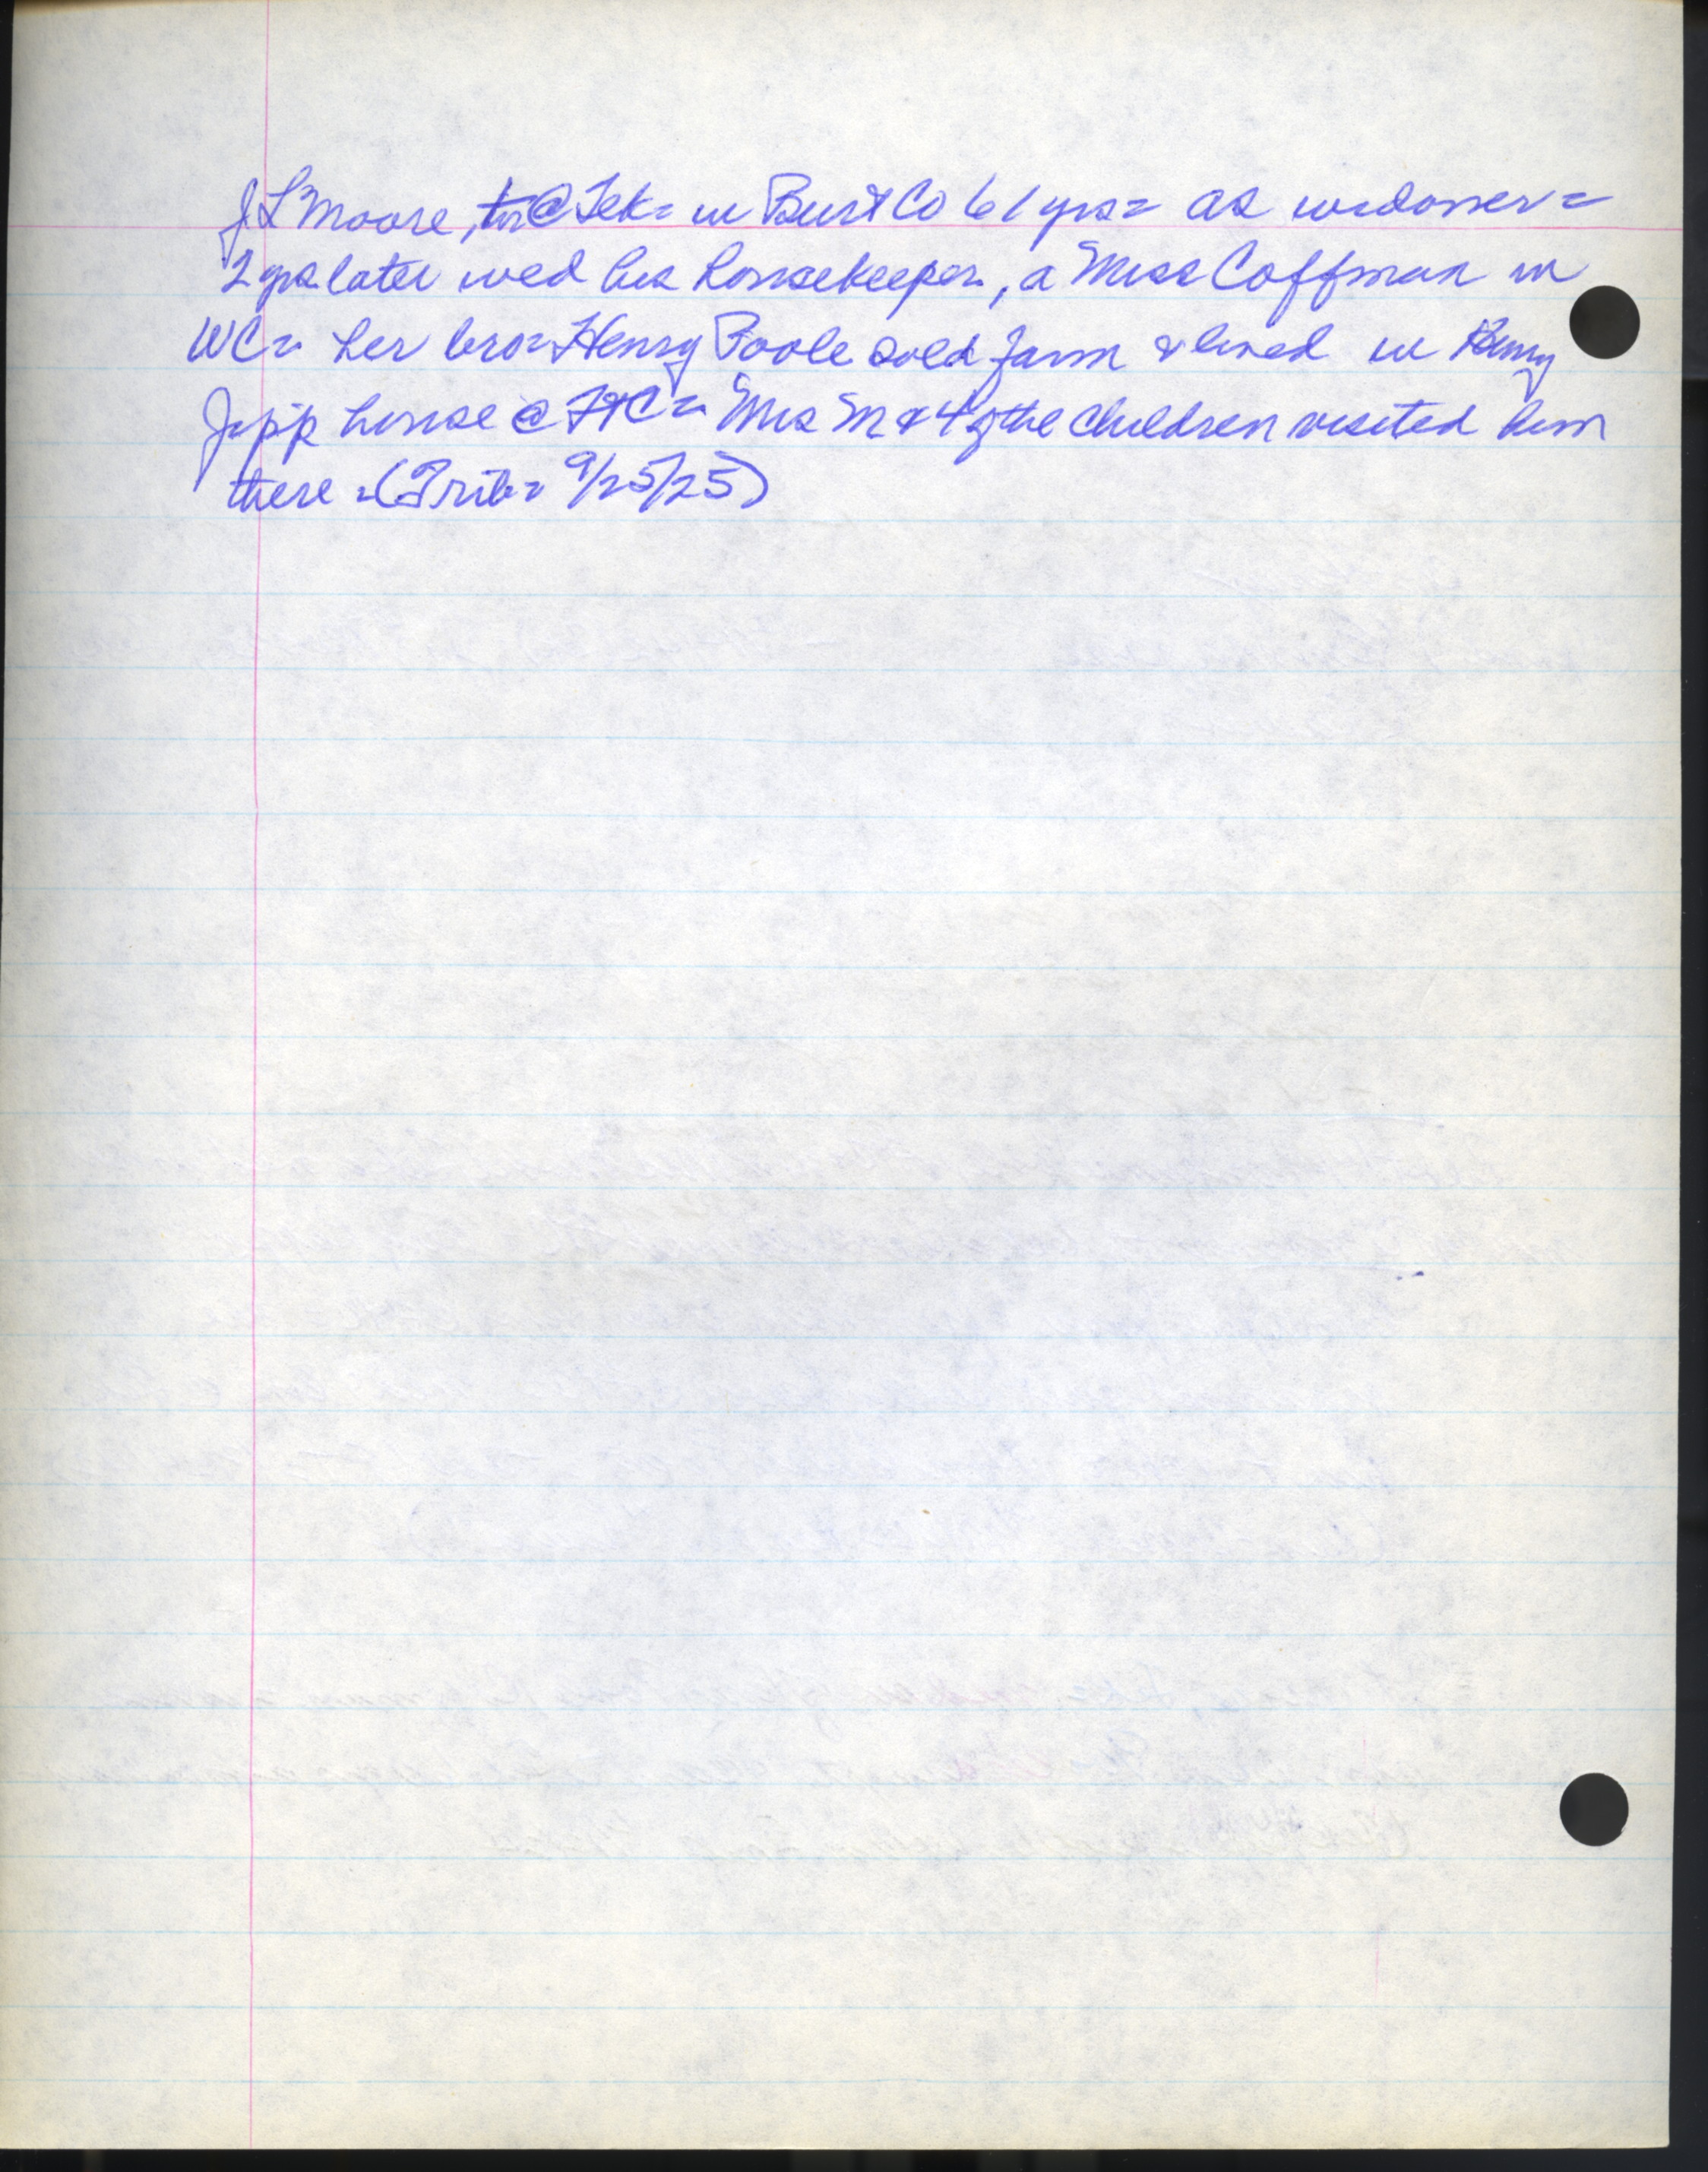 J L Moore, @ Tek= in Burt Co 61 yrs= as widower=
2 yrs later wed his housekeeper, a Miss Coffman in
WC= her bro= Henry Poole sold farm & lived in Henry
Jipp house @ FtC= Mrs M & 4 of the children visited him
there =(Trib= 9/25/25)